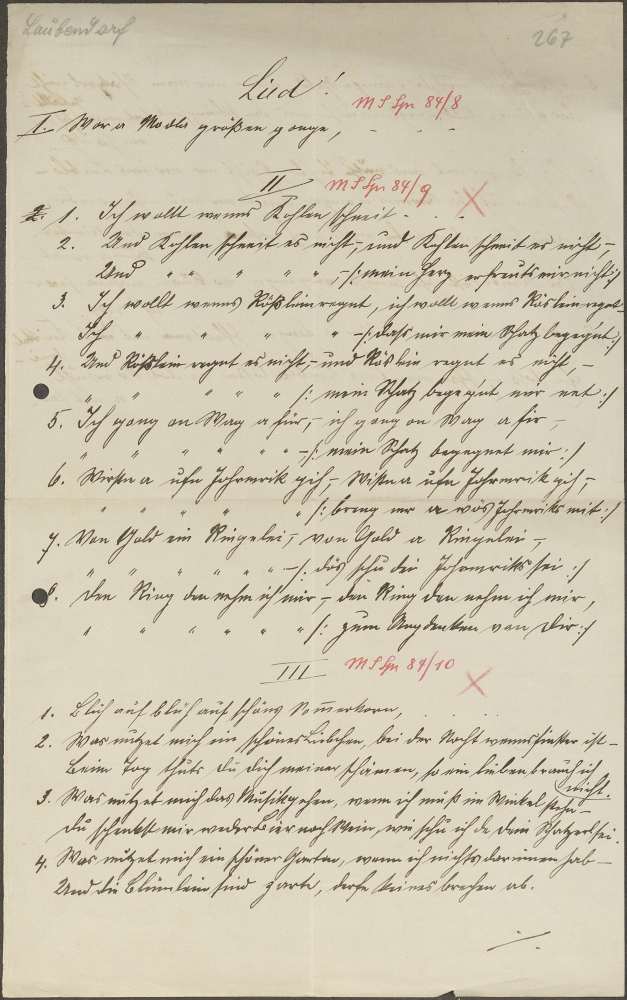 Laubendorf
267
Lied!
MS Spr 84/8
I. War a Madla größen gange, - - -
II
MS Spr 84/9
1. Ich wollt wenns Kohlen schneit - . -
2. Und Kohlen schneit es nicht, und Kohlen schneit es nicht, -
Und " " " " " , - /: mein Herz erfreuts mir nicht :/
3. Ich wollt wenns Rößlein regnt, ich wollt wenns Röslein regnt -
Ich " " " " - /: daß mir mein Schatz begegnt :/
4. Und Rößlein regnt es nicht, - und Röslein regnt es nicht, -
" " " " " /: mein Schatz begegnt mir net :/
5. Ich gang an Wag a für, - ich gang an Wag a für, -
" " " " " " - /: mein Schatz begegnet mir :/
6. ufn Johrmrik gih, - ufn Johrmrik gih, -
" " " " " /: breng mr a wos Johrmriks mit :/
7. Von Gold ein Ringelei, - von Gold a Ringelei -,
" " " " " " - /: dös schu dei Johrmriks sei :/
8. Den Ring den nehm ich mir - den Ring den nehm ich mir,
" " " " " " /: zum Angdenken von Dir :/
III
MS Spr 84/10
1. Blüh auf blüh auf schöns Sommerkorn, . . .
2. Was nützet mich ein schönes Liebchen, bei der Nacht wenns finster ist -
Beim Tag thuts du dich meiner schämen, so ein lieben brauch ich nicht.
3. Was nützet mich das Musikgehen, wenn ich muß im Winkel stehn -
Du schenkst mir weder Bier noch Wein, wie schu ich de dein Schatzerl sei.
4. Was nützet mich ein schöner Garten, wenn ich nichts darinnen hab -
Und die Blümlein sind zarte, derfe keines brechen ab.